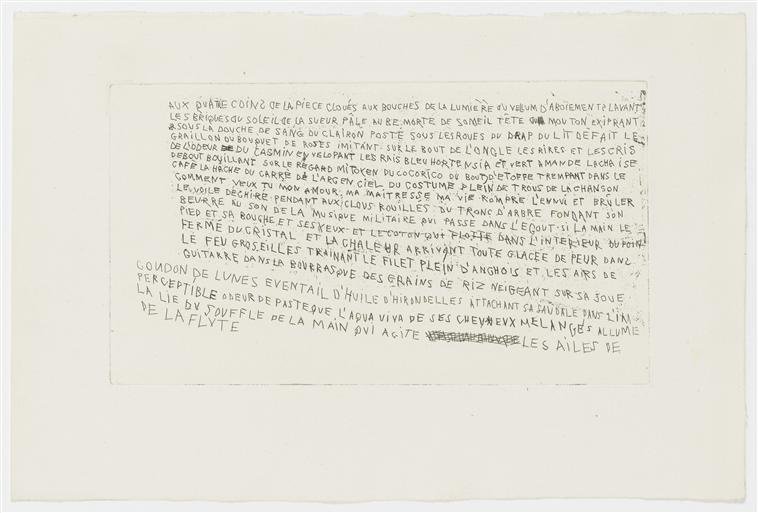 AUX QUATRE COINS DE LA PIECE CLOUÉS AUX BOUCHES DE LA LUMIÈRE DU VELUM D'ABOIEMENTS LAVANT
LES BRIQUES DU SOLEIL DE LA SUEUR PÂLE AUBE MORTE DE SOMEIL TÊTE MOUTON EXPIRANT
SOUS LA DOUCHE DE SANG DU CLAIRON POSTÉ SOUS LES ROUES DU DRAP DU LIT DÉFAIT LE
GRAILLON DU BOUQUET DE ROSES IMITANT SUR LE BOUT DE L'ONGLE LES RIRES ET LES CRIS
DE L'ODEUR DU JASMIN ENVELOPANT LES RAIS BLEU HORTENSIA ET VERT AMANDE LA CHAISE
DEBOUT BOUILLANT SUR LE REGARD MITOYEN DU COCORICO DU BOUT D'ETOFFE TREMPANT DANS LE
CAFÉ LA HACHE DU CARRÉ DE L'ARGEN CIEL DU COSTUME PLEIN DE TROUS DE LA CHANSON
COMMENT VEUX TU MON AMOUR, MA MAITRESSE MA VIE ROMPRE L'ENNUI ET BRULER
LE VOILE DECHIRÉ PENDANT AUX CLOUS ROUILLÉS DU TRONC D'ARBRE FONDANT SON
BEURRE AU SON DE LA MUSIQUE MILITAIRE QUI PASSE DANS L'EGOUT SI LA MAIN LE
PIED ET SA BOUCHE ET SES YEUX ET LE COTON QUI FLOTTE DANS L'INTERIEUR DU POING
FERMÉ DU CRISTAL ET LA CHALEUR ARRIVANT TOUTE GLACÉE DE PEUR DANS
LE FEU GROSEILLES TRAINANT LE FILET PLEIN D'ANCHOIS ET LES AIRS DE
GUITARRE DANS LA BOURRASQUE DES GRAINS DE RIZ NEIGEANT SUR SA JOUE
GOUDON DE LUNES EVENTAIL D'HUILE D'HIRONDELLES ATTACHANT SA SAUDALE DANS L'IM
PERCEPTIBLE ODEUR DE PASTEQUE L'AQUA VIVA DE SES CHEVEUX MELANGÉS ALLUME
LA LIE DU SOUFFLE DE LA MAIN QUI AGITE LES AILES DE
DE LA FLUTE